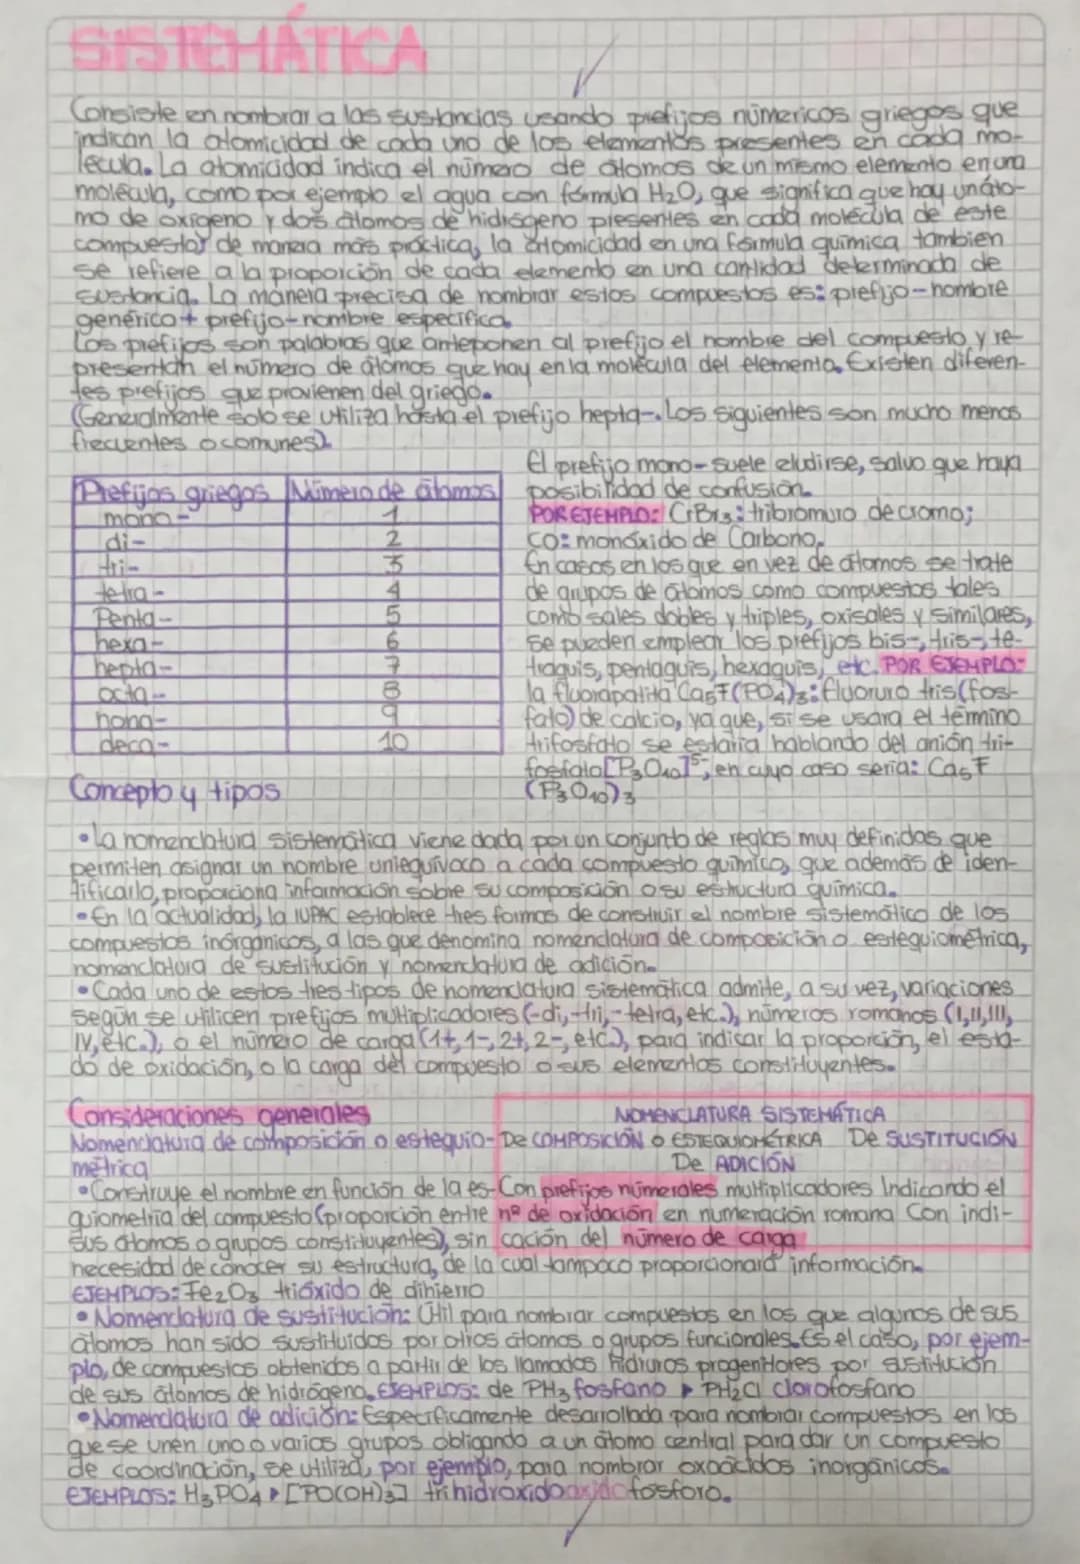 SISTEMÁTICA
Consiste en nombrar a las sustancias usando prefijos númericos griegos que
indican la atomicidad de cada uno de los elementos presentes en cada mo-
lécula. La atomicidad indica el número de átomos de un mismo elemento en una
molécula, como por ejemplo el agua con fórmula H₂O, que significa que hay un áto-
mo de oxígeno y dos átomos de hidrógeno presentes en cada molécula de este
compuesto, de manera más práctica, la atomicidad en una fórmula química tambien
se refiere a la proporción de cada elemento en una cantidad determinada de
sustancia. La manera precisa de nombrar estos compuestos es: prefijo-nombre
genérico + prefijo-nombre específico.
Los prefijos son palabras que anteponen al prefijo el nombre del compuesto y re-
presentan el número de átomos que hay en la molécula del elemento. Existen diferen-
tes prefijos que provienen del griego.
(Generalmente solo se utiliza hasta el prefijo hepta-. Los siguientes son mucho menos
frecuentes o comunes).
Prefijos griegos Número de átomos
mono- 1
di- 2
tri- 3
tetra- 4
Penta- 5
hexa- 6
hepta- 7
octa- 8
nona- 9
deca- 10
El prefijo mono- suele eludirse, salvo que haya
posibilidad de confusión.
POR EJEMPLO: CrBr₃: tribromuro de cromo;
CO: monóxido de Carbono.
En casos en los que en vez de átomos se trate
de grupos de átomos como compuestos tales
como sales dobles y triples, oxisales y similares,
se pueden emplear los prefijos bis-, tris-, te-
traquis, pentaquis, hexaquis, etc. POR EJEMPLO:
la fluorapatita Ca₅F(PO₄)₃: fluoruro tris(fosf-
fato) de calcio, ya que, si se usara el término
trifosfato se estaría hablando del anión tri-
fosfato [P₃O₁₀]⁵⁻, en cuyo caso sería: Ca₅F
(P₃O₁₀)₃
Concepto y tipos
• La nomenclatura sistemática viene dada por un conjunto de reglas muy definidas que
permiten asignar un nombre uniequívoco a cada compuesto químico, que además de iden-
tificarlo, proporciona información sobre su composición o su estructura química.
• En la actualidad, la IUPAC establece tres formas de construir el nombre sistemático de los
compuestos inórganicos, a las que denomina nomenclatura de composición o estequiométrica,
nomenclatura de sustitución y nomenclatura de adición.
• Cada uno de estos tres tipos de nomenclatura sistemática admite, a su vez, variaciones
según se utilicen prefijos multiplicadores (-di,-tri,-tetra, etc.), números romanos (I,II,III,
IV, etc.), o el número de carga (1+, 1-, 2+, 2-, etc.), para indicar la proporción, el esta-
do de oxidación, o la carga del compuesto o sus elementos constituyentes.
Consideraciones generales
Nomenclatura de composición o estequio-
métrica
• Construye el nombre en función de la es-
quiometría del compuesto (proporción entre
sus átomos o grupos constituyentes), sin
NOMENCLATURA SISTEMÁTICA
De COMPOSICIÓN o ESTEQUIOMÉTRICA De SUSTITUCIÓN
De ADICIÓN
Con prefijos númerales multiplicadores Indicando el
nº de oxidación en numeración romana Con indi-
cación del número de carga
necesidad de conocer su estructura, de la cual tampoco proporcionará información.
EJEMPLOS: Fe₂O₃ trióxido de dihierro
• Nomenclatura de sustitución: Útil para nombrar compuestos en los que algunos de sus
átomos han sido sustituidos por otros átomos o grupos funcionales. Es el caso, por ejem-
plo, de compuestos obtenidos a partir de los llamados hidruros progenitores por sustitución
de sus átomos de hidrógeno. EJEMPLOS: de PH₃ fosfano ▸ PH₂Cl clorofosfano
• Nomenclatura de adición: Específicamente desarrollada para nombrar compuestos en los
que se unen uno o varios grupos obligando a un átomo central para dar un compuesto
de coordinación, se utiliza, por ejemplo, para nombrar oxoácidos inorgánicos.
EJEMPLOS: H₃PO₄ ▸ [PO(OH)₃] trihidroxidooxidofosforo.